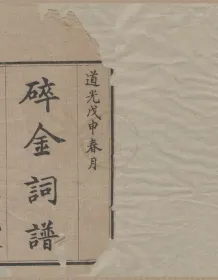 道光戊申春月
碎金詞譜